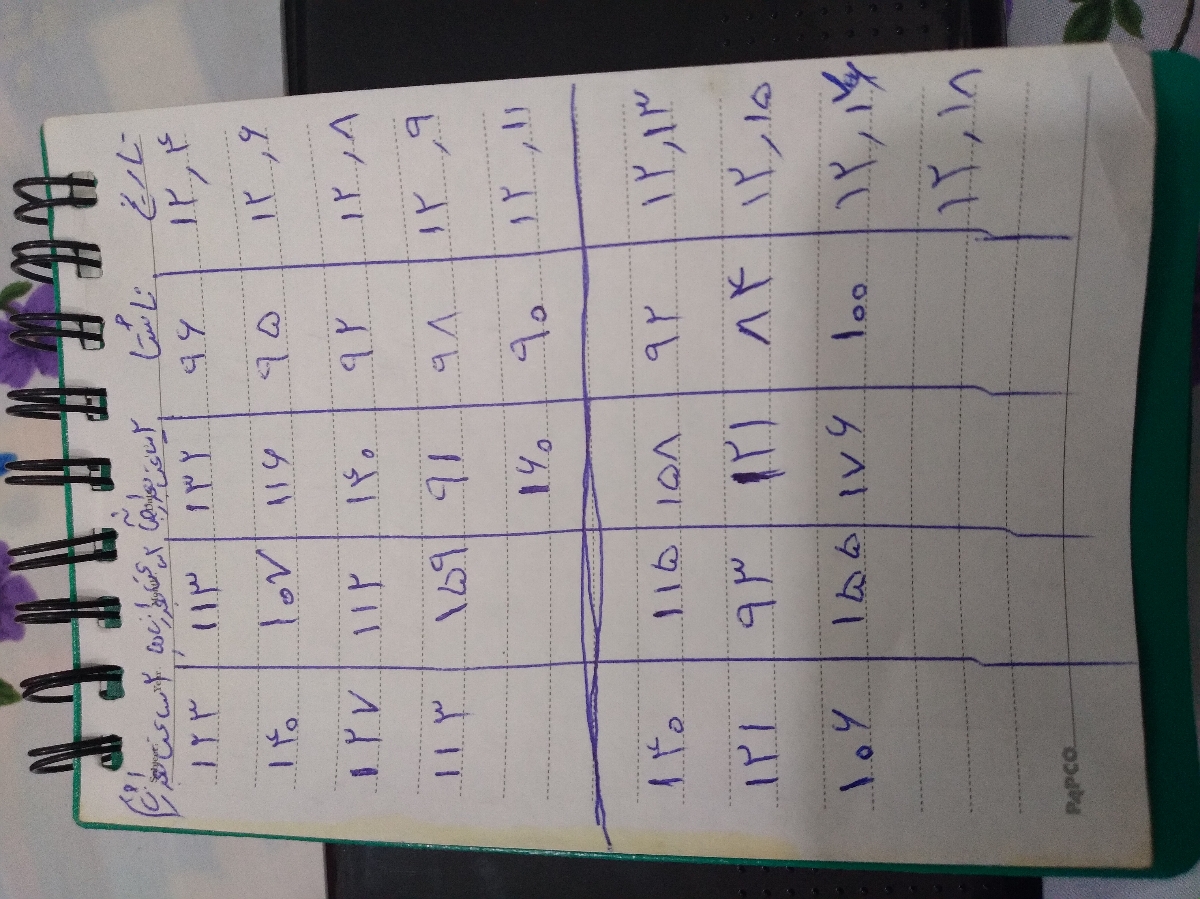 تاریخ ناشتا ۲ ساعت بعد از ۲ ساعت بعد از ۲ ساعت بعد از
۱۲,۴ ۹۶ ۱۳۲ ۱۱۳ ۱۲۳
۱۲,۶ ۹۵ ۱۱۶ ۱۰۷ ۱۴۰
۱۲,۸ ۹۲ ۱۴۰ ۱۱۲ ۱۲۷
۱۲,۹ ۹۸ ۹۱ ۱۵۹ ۱۱۳
۱۲,۱۱ ۹۰ ۱۶۰
۱۲,۱۳ ۹۲ ۱۵۸ ۱۱۵ ۱۴۰
۱۲,۱۵ ۸۴ ۱۲۱ ۹۳ ۱۲۱
۱۰۰ ۱۷۶ ۱۵۵ ۱۰۶
۱۲,۱۸
PAPCO